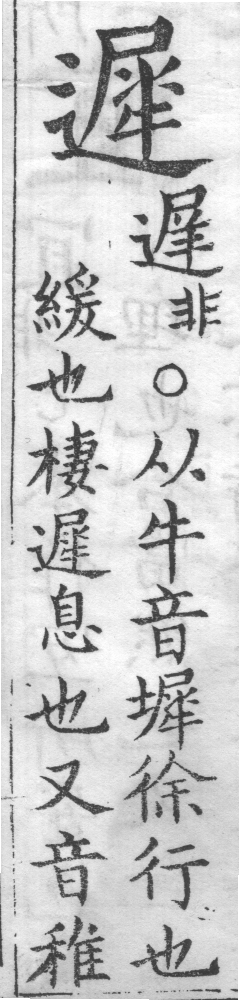 遲
遅非○从牛音墀徐行也
緩也棲遲息也又音稚